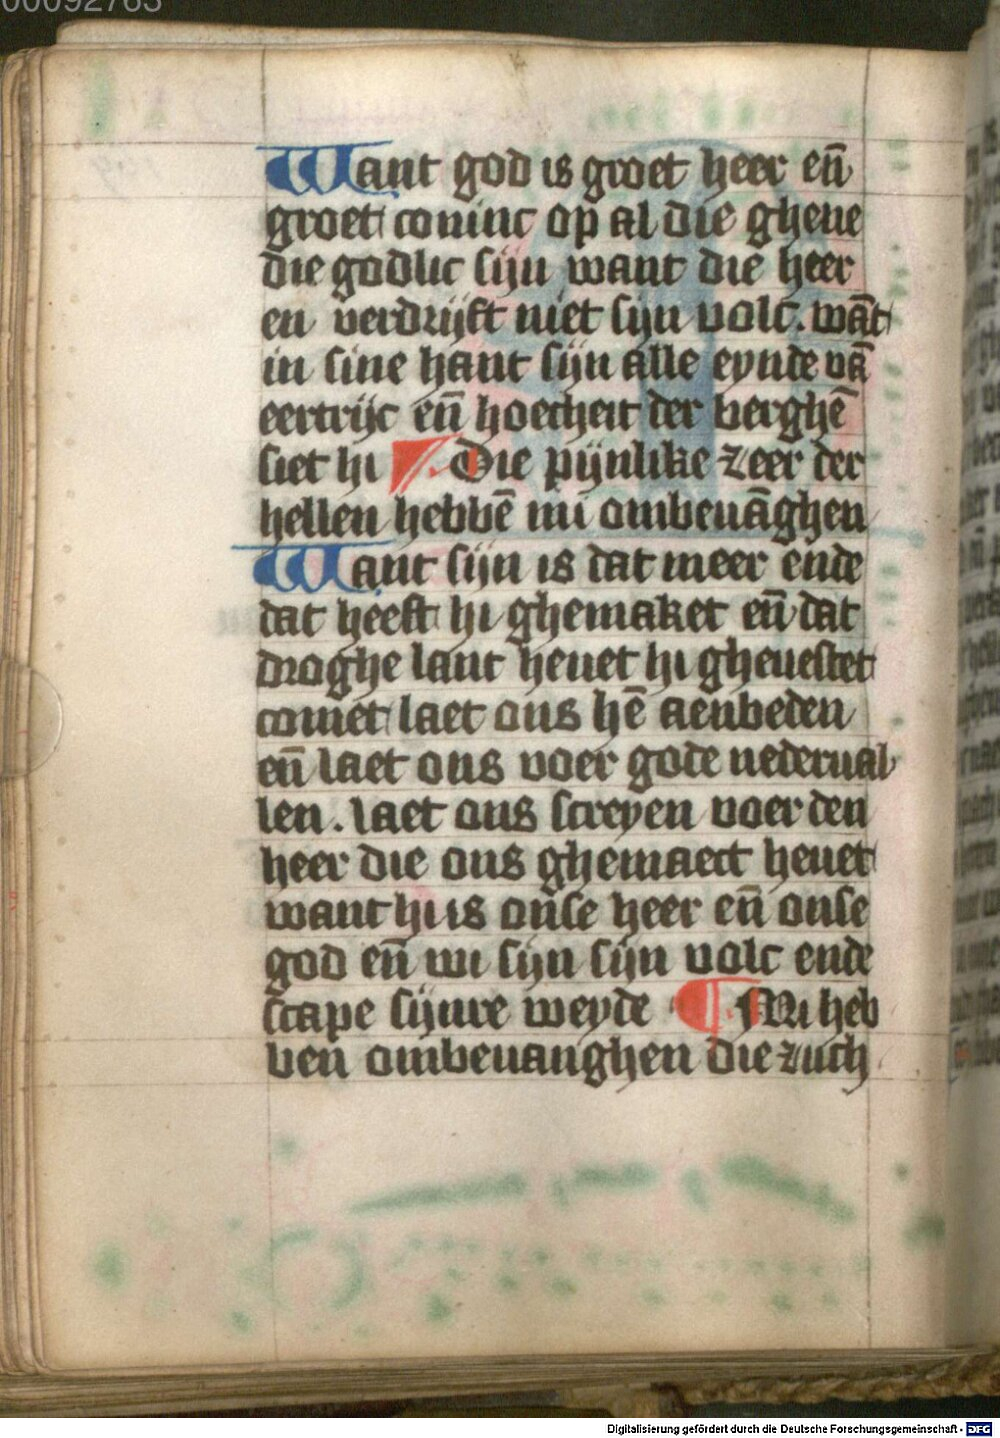 00092763
Want god is groet heer en̄
groet coninc op al die ghene
die godlic sijn want die heer
en verdrijft niet sijn volc. wāt
in sine hant sijn alle eynde vā
eertrijc en̄ hoecheit der berghē
siet hi Die pijnlike zeer der
hellen hebbē mi ombeuāghen
Want sijn is dat meer ende
dat heeft hi ghemaket en̄ dat
droghe lant heuet hi gheuestet
comet laet ons hē aenbeden
en̄ laet ons voer gode nederual
len. laet ons screyen voer den
heer die ons ghemaect heuet
want hi is onse heer en̄ onse
god en̄ wi sijn sijn volc ende
scape sijnre weyde Mi heb
ben ombeuanghen die zuch
Digitalisierung gefördert durch die Deutsche Forschungsgemeinschaft - DFG